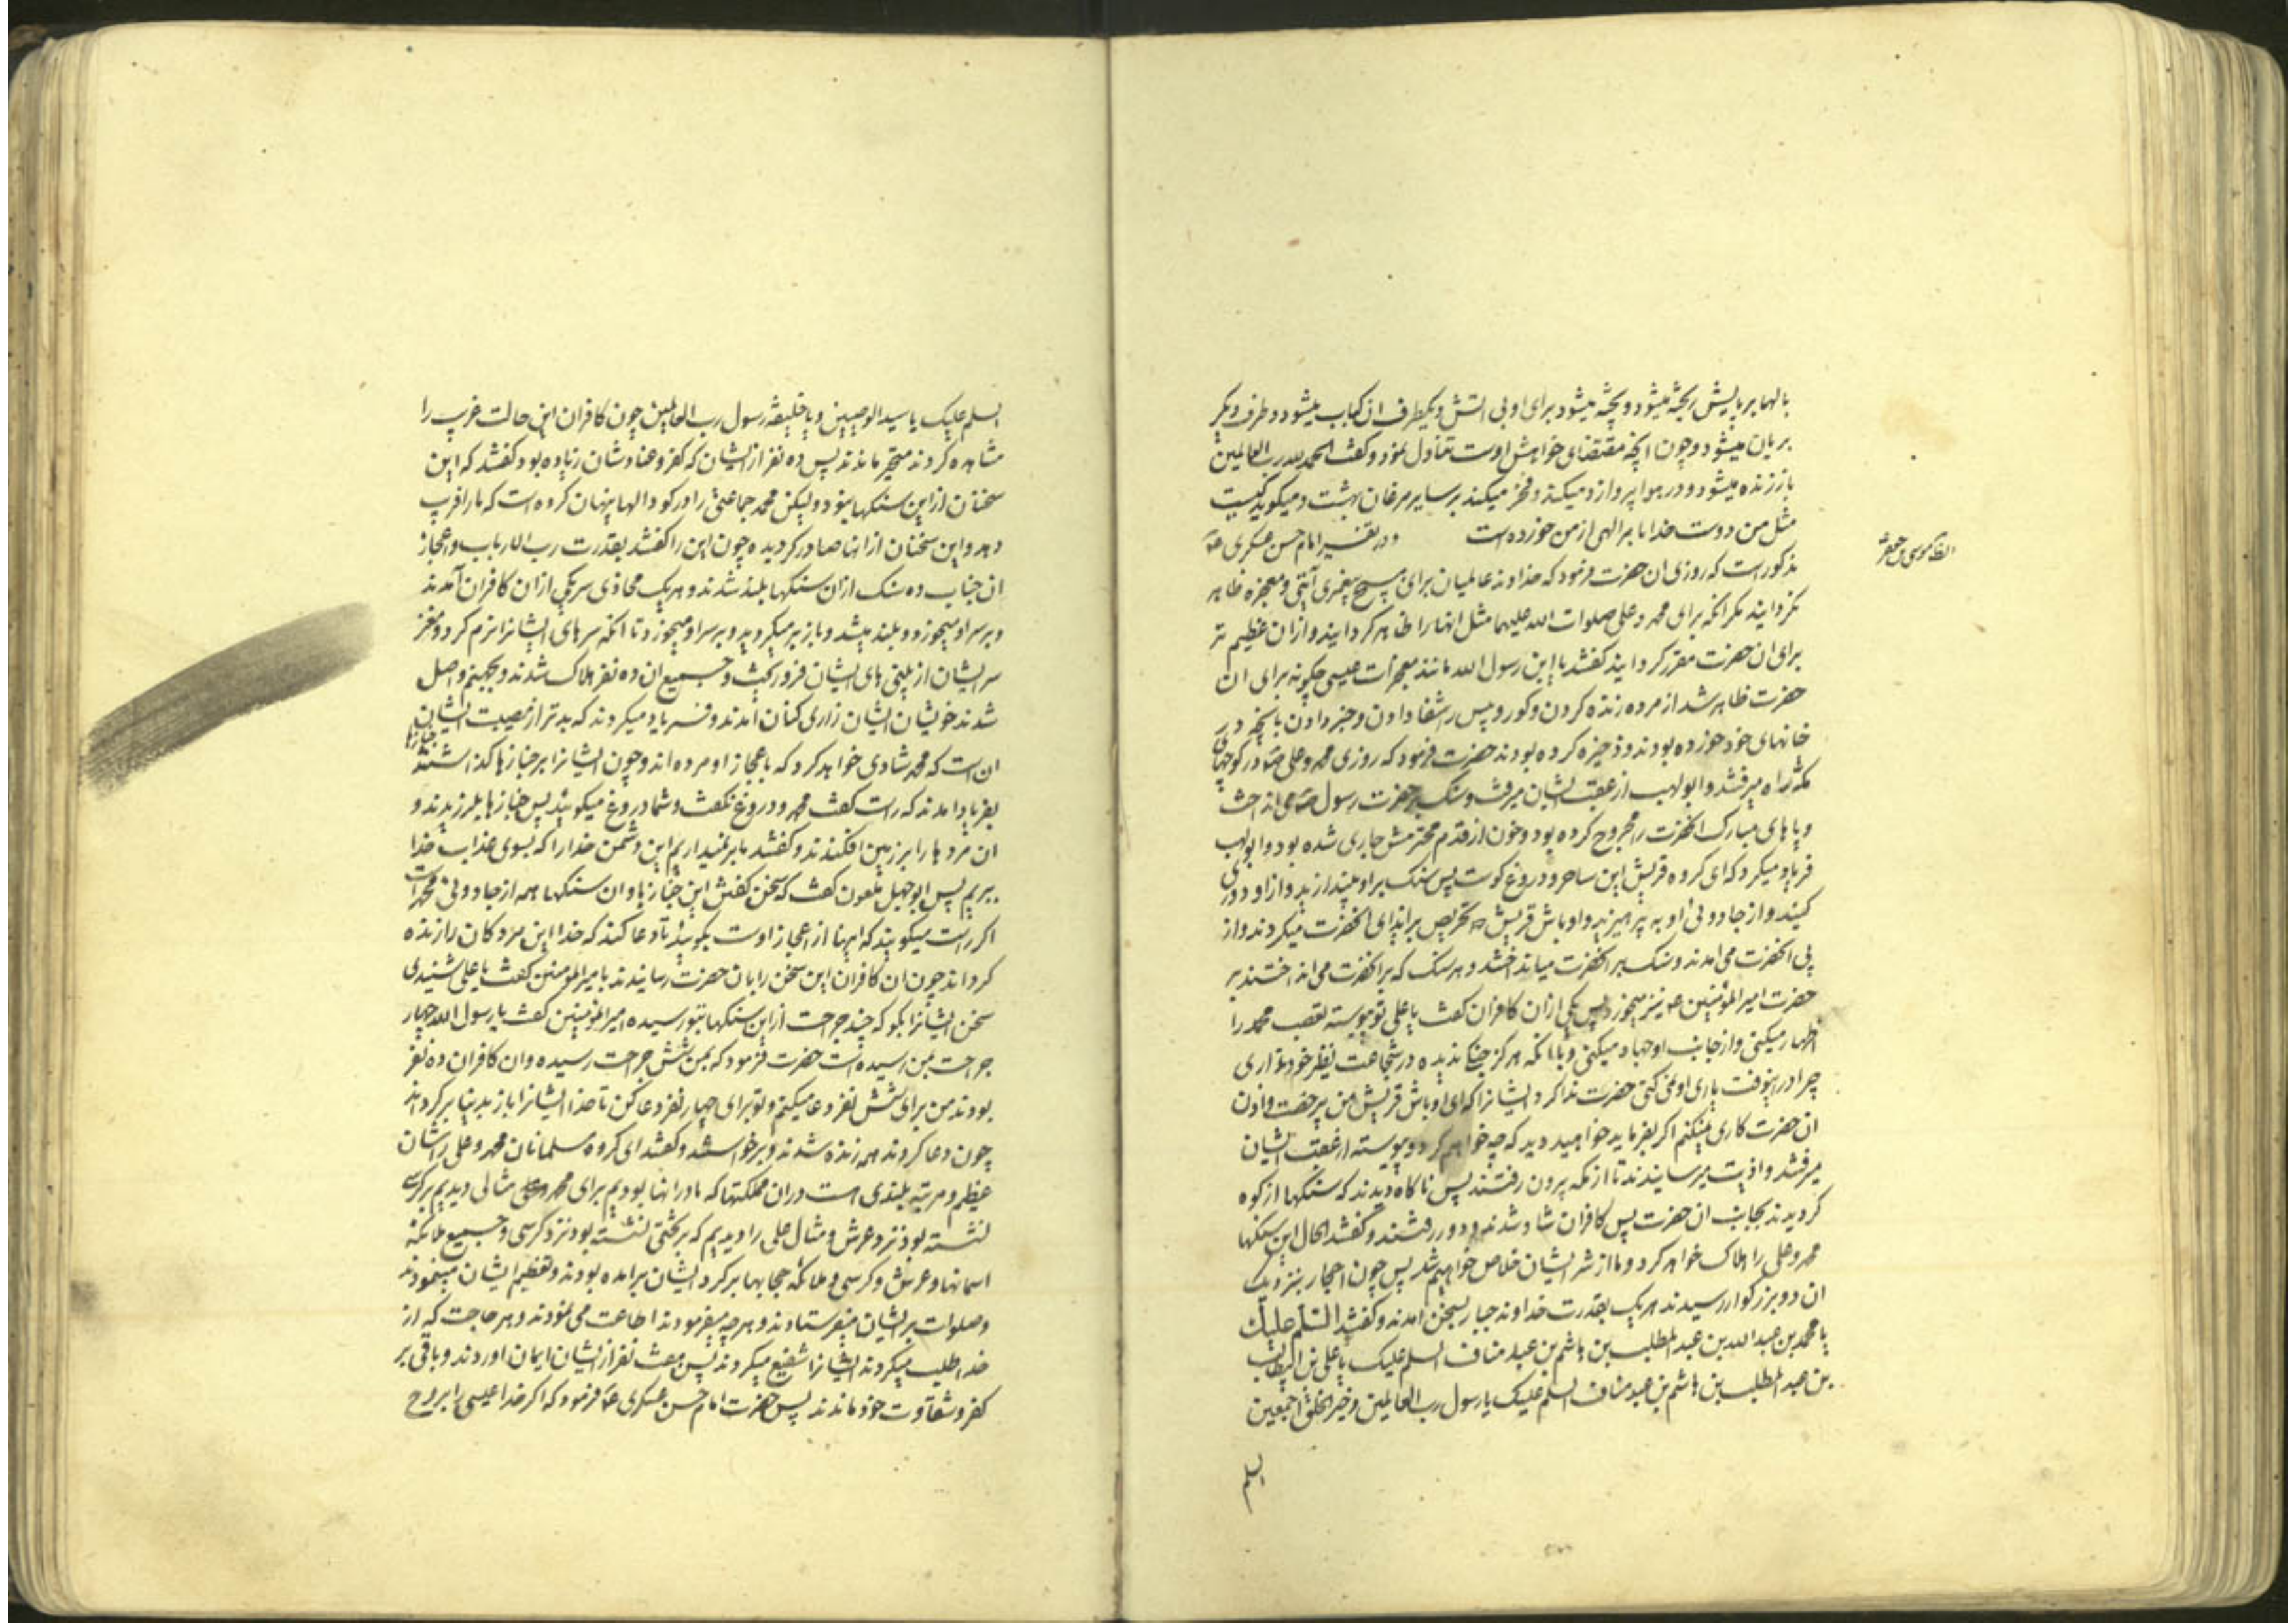 بالها و پرهایش ریخته میشود و پخته میشود برای او بی اتش و یکطرف ان کباب میشود و طرف دیگر
بریان میشود و چون انچه مقتضای خواهش اوست تناول نمود و گفت الحمد لله رب العالمین
باز زنده میشود و در هوا پرواز میکند و فخر میکند بر سایر مرغان بهشت و میگوید کیست
مثل من دوست خدا بامر الهی از من خورده است و در تفسیر امام حسن عسکری ع
مذکور است که روزی ان حضرت فرمود که خداوند عالمیان برای هیچ پیغمبری آیتی و معجزه ظاهر
نکردانید مکر انکه برای محمد و علی صلوات الله علیهما مثل انها را ظاهر کردانید و از ان عظیم تر
برای ان حضرت مقرر کردانید کفتند یا ابن رسول الله مانند معجزات عیسی چکونه برای ان
حضرت ظاهر شد از مرده زنده کردن و کور و پیس را شفا دادن و خبر دادن بانچه در
خانهای خود خورده بودند و ذخیره کرده بودند حضرت فرمود که روزی محمد و علی در کوچهای
مکه راه میرفتند و ابولهب از عقب ایشان میرفت و سنک بر حضرت رسول می انداخت
و پاهای مبارک انحضرت را مجروح کرده بود و خون از قدم محترمش جاری شده بود و ابولهب
فریاد میکرد که ای کروه قریش این ساحر و دروغ کوست پس سنک بر او بیندازید و از او دوری
کنید و از جادوئی او بپرهیزید و اوباش قریش را تحریص بر ایذای انحضرت میکردند و از
پی انحضرت می امدند و سنک بر انحضرت میانداختند و هر سنک که بر انحضرت می انداختند بر
حضرت امیر المؤمنین ع نیز میخورد پس یکی از ان کافران کفت یا علی تو پیوسته تعصب محمد را
اظهار میکنی و از جانب او جهاد میکنی و با انکه هرکز جنک ندیده در شجاعت نظیر خود نداری
چرا در اینوقت یاری او نمی کنی حضرت ندا کرد ایشانرا که ای اوباش قریش من بی رخصت و اذن
ان حضرت کاری نمیکنم اکر بفرماید خواهید دید که چه خواهم کرد و پیوسته از عقب ایشان
میرفتند و اذیت میرسانیدند تا از مکه بیرون رفتند پس ناکاه دیدند که سنکها از کوه
کردیدند بجانب ان حضرت پس کافران شاد شدند و دور رفتند و کفتند الحال این سنکها
محمد و علی را هلاک خواهد کرد و ما از شر ایشان خلاص خواهیم شد پس چون احجار بنزدیک
ان دو بزرکوار رسیدند هر یک بقدرت خداوند جبار بسخن امدند و کفتند السلم علیک
یا محمد بن عبد الله بن عبد المطلب بن هاشم بن عبد مناف السلم علیک یا علی بن ابیطالب
بن عبد المطلب بن هاشم بن عبد مناف السلم علیک یا رسول رب العالمین و خیر الخلق اجمعین
السلم
السلم علیک یا سید الوصیین و یا خلیفة رسول رب العالمین چون کافران این حالت غریب را
مشاهده کردند متحیر ماندند پس ده نفر از ایشان که کفر و عنادشان زیاده بود کفتند که این
سخنان از این سنکها نبود ولیکن محمد جماعتی را در کودالها پنهان کرده است که ما را فریب
دهد و این سخنان از انها صادر کردیده چون این را کفتند بقدرت رب الارباب و اعجاز
ان جناب ده سنک از ان سنکها بلند شدند و هر یک محاذی سر یکی از ان کافران آمدند
و بر سر او میخورد و بلند میشد و باز بر میکردید و بر سر او میخورد تا انکه سرهای ایشانرا نرم کرد و مغز
سر ایشان از بینی های ایشان فرو ریخت و جمیع ان ده نفر هلاک شدند و بجهنم واصل
شدند خویشان ایشان زاری کنان امدند و فریاد میکردند که بدتر از مصیبت ایشان
ان است که محمد شادی خواهد کرد که باعجاز او مرده اند و چون ایشانرا بر جنازها کذاشتند جنازها
بفریاد امدند که راست کفت محمد و دروغ نکفت و شما دروغ میکوئید پس جنازها بلرزیدند و
ان مردها را بر زمین افکندند و کفتند ما بر نمیداریم این دشمن خدا را که بسوی عذاب خدا
ببریم پس ابوجهل ملعون کفت که سخن کفتن این جنازها و ان سنکها همه از جادوئی محمد است
اکر راست میکویند که اینها از اعجاز اوست بکوئید تا دعا کند که خدا این مردکان را زنده
کرداند چون ان کافران این سخن را بان حضرت رسانیدند بامیر المؤمنین کفت یا علی شنیدی
سخن ایشانرا بکو که چند جراحت از این سنکها بتو رسیده امیر المؤمنین کفت یا رسول الله چهار
جراحت بمن رسیده است حضرت فرمود که بمن شش جراحت رسیده و ان کافران ده نفر
بودند من برای شش نفر دعا میکنم و تو برای چهار نفر دعا کن تا خدا ایشانرا باز بدنیا برکرداند
چون دعا کردند همه زنده شدند و برخواستند و کفتند ای کروه مسلمانان محمد و علی را شان
عظیم و مرتبه بلندی است در ان مملکتها که ما در انها بودیم برای محمد مثالی دیدیم بر کرسی
نشسته بود نزد عرش و مثال علی را دیدیم که بر تختی نشسته بود نزد کرسی و جمیع ملائکه
اسمانها و عرش و کرسی و ملائکه حجابها بر کرد ایشان برامده بودند و تعظیم ایشان مینمودند
و صلوات بر ایشان میفرستادند و هر چه میفرمودند اطاعت می نمودند و هر حاجت که از
خدا طلب میکردند ایشانرا شفیع میکردند پس هفت نفر از ایشان ایمان اوردند و باقی بر
کفر و شقاوت خود ماندند پس حضرت امام حسن عسکری ع فرمود که اکر خدا عیسی را بروح